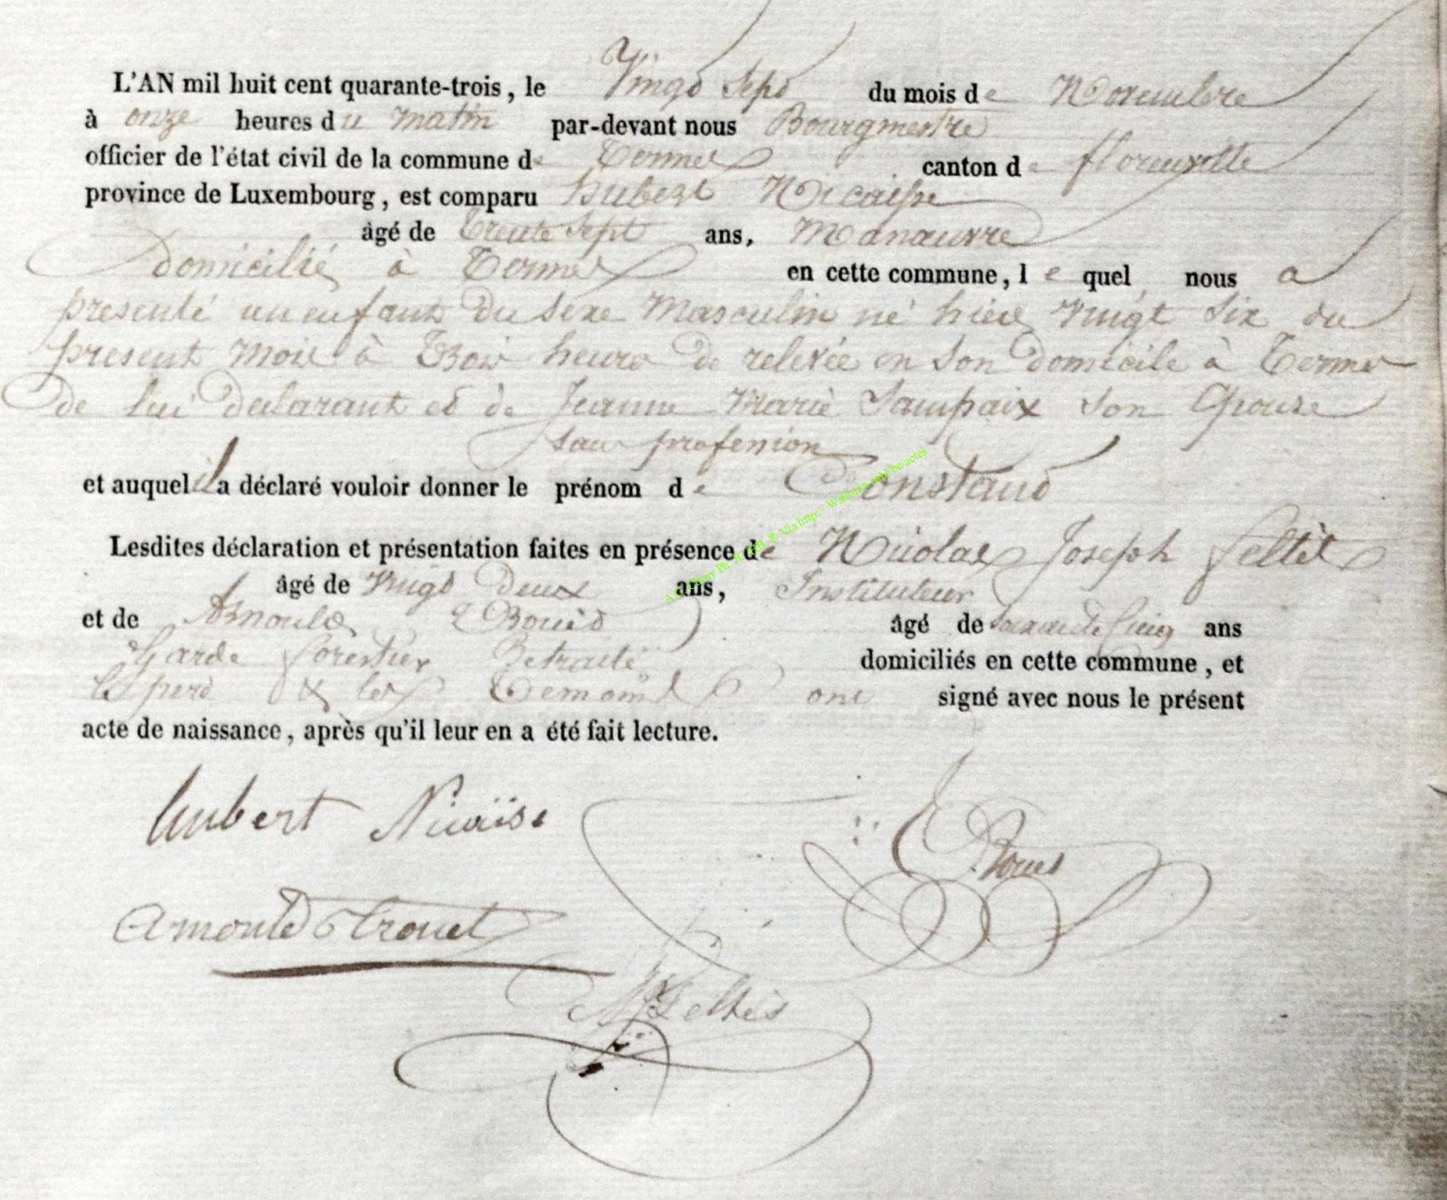 L'AN mil huit cent quarante-trois, le Vingt Sept du mois de Novembre
à onze heures du matin par-devant nous Bourgmestre
officier de l'état civil de la commune de Termes canton de florenville
province de Luxembourg, est comparu hubert Nicaise
âgé de trente Sept ans, Manœuvre
domicilié à Termes en cette commune, le quel nous a
presenté un enfant du sexe Masculin né hier vingt six du
present mois à Trois heures de relevée en son domicile à Termes
de lui declarant et de Jeanne Marie Sampaix son Epouse
sans profession
et auquel il a déclaré vouloir donner le prénom de Constant
Lesdites déclaration et présentation faites en présence de Nicolas Joseph
âgé de vingt Deux ans, Instituteur
et de Arnould âgé de ans
Garde forestier Retraité domiciliés en cette commune, et
Le pere & les Temoins ont signé avec nous le présent
acte de naissance, après qu'il leur en a été fait lecture.
hubert Nicaise
Arnould